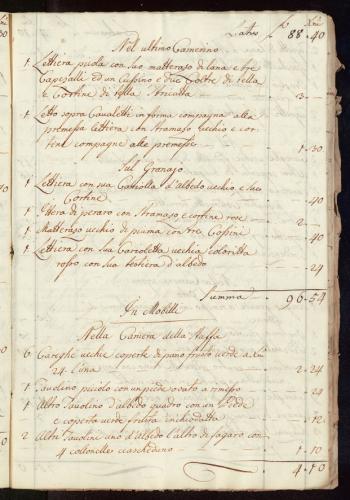 Latus f 88.40
Nel ultimo Camerino
1 Lettiera picola con suo matteraso di lana e tre
Capezalli ed un Cussino e due Coltre di tella
e Cortine di tella 3 –
1 Letto sopra Cavaletti in forma compagna alla
premessa Lettiera con Stramaso vechio e cor-
tine compagne alle premesse 1.30
Sul Granajo
1 Lettiera con sua Cariolla d'albedo vechio e sue
Cortine – .40
1 lettera di peraro con Stramaso e cortine rose 2 –
1 Matteraso vechio di piuma con tre Cossini – .40
1 Lettiera con sua Carioletta vechia coloritta
rosso con sua testiera d'albedo – .24
Summa 96.54
In Mobilli
Nella Camera della Staffa
6 Careghe vechie coperte di pano frusto verde a
24 l'una 2.24
1 Tavolino picolo con un piede 24
1 Altro Tavolino d'albedo quadro con un Piede
e coperta verde frusta inchiodatta – .12
2 Altri Tavolini uno d'albedo l'altro di fagaro con
4 collonelle ciascheduno 1.10
4.10